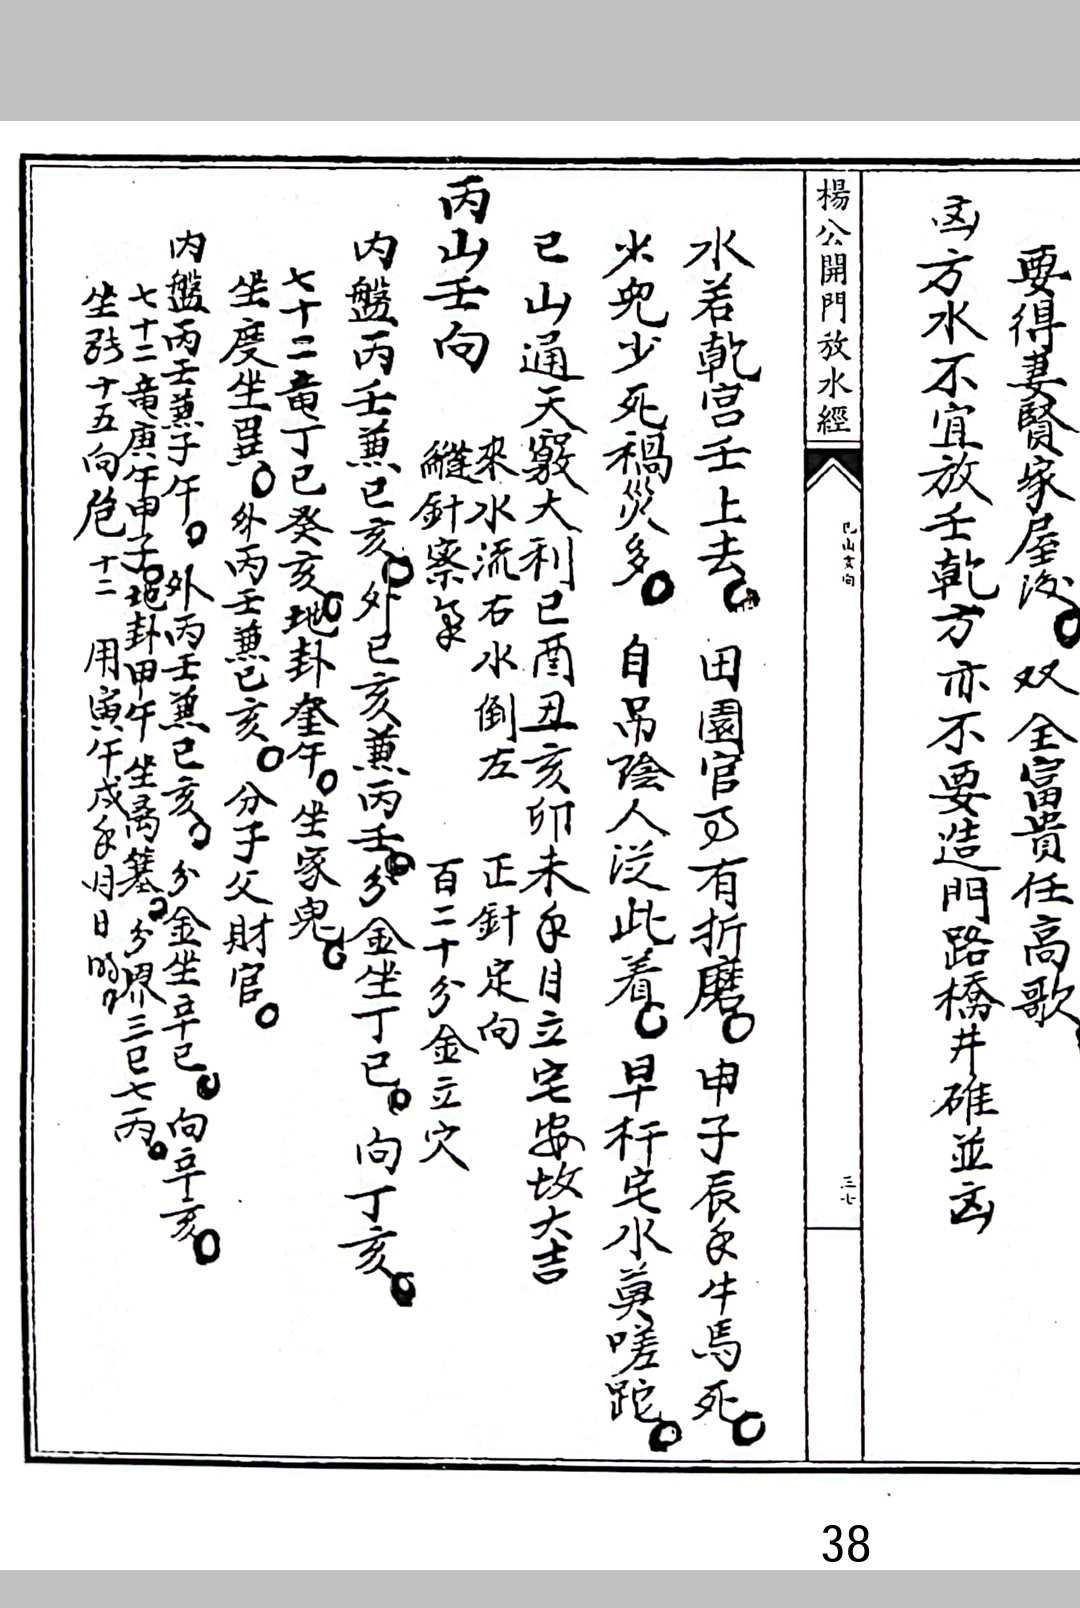 要得妻賢家屋後 双全富貴任高歌
凶方水不宜放壬乾方亦不要造門路橋井碓並凶
楊公開門放水經
巳山亥向
三七
水若乾宮壬上去 田園官事有折磨 申子辰年牛馬死
少死禍災多 自吊陰人從此着 早杆宅水莫嗟跎
巳山通天竅大利巳酉丑亥卯未年月立宅安坟大吉
丙山壬向
來水流右水倒左 正針定向
縫針察氣 百二十分金立穴
内盤丙壬兼巳亥 外巳亥兼丙壬 分金坐丁巳 向丁亥
七十二竜丁巳癸亥 地卦奎午 坐家鬼
坐度坐翼 外丙壬兼巳亥 分子父財官
内盤丙壬兼子午 外丙壬兼巳亥 分金坐辛巳 向辛亥
七十二竜庚午甲子 地卦甲午 坐离蹇 分界三巳七丙
坐張十五向危十二 用寅午戌年月日時
38